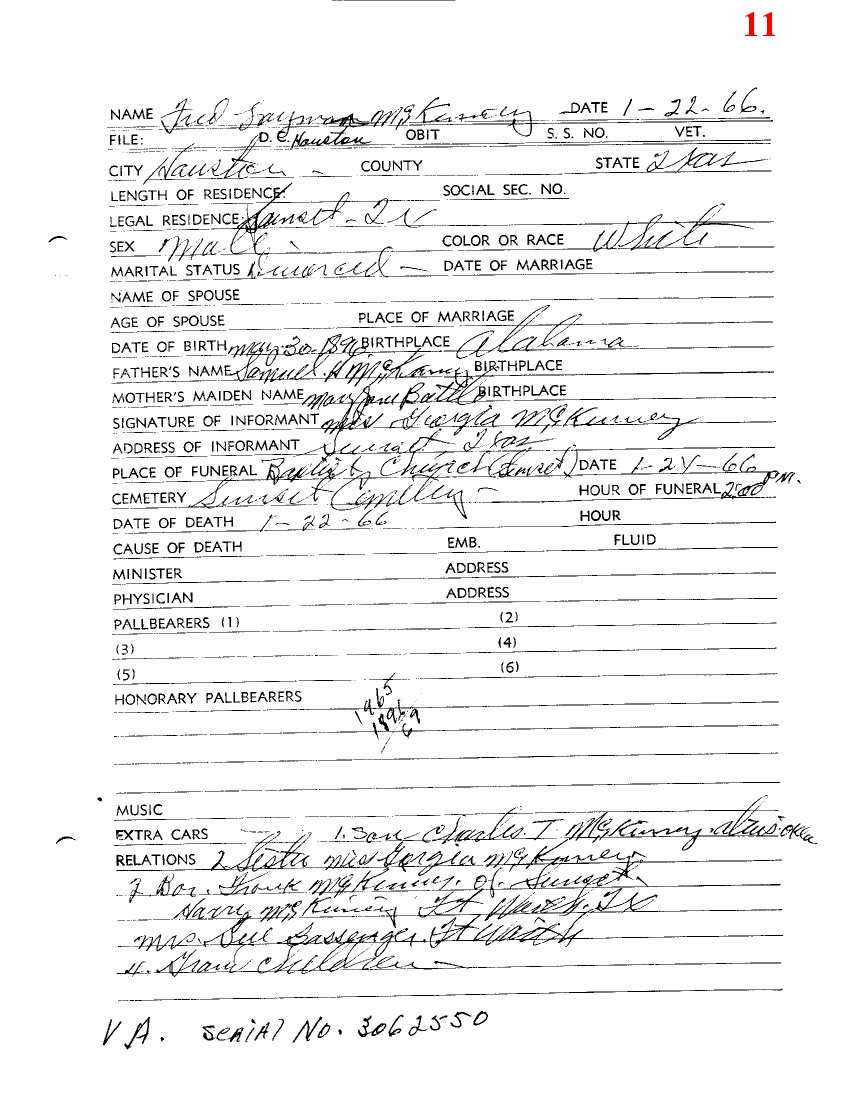 11
NAME Fred Layman McKinney DATE 1-22-66.
FILE: D.C. Houston OBIT S. S. NO. VET.
CITY Houston - COUNTY STATE Texas
LENGTH OF RESIDENCE: SOCIAL SEC. NO.
LEGAL RESIDENCE: Sunset - TX
SEX Male - COLOR OR RACE White
MARITAL STATUS Divorced - DATE OF MARRIAGE
NAME OF SPOUSE
AGE OF SPOUSE PLACE OF MARRIAGE
DATE OF BIRTH May 30, 1896 BIRTHPLACE Alabama
FATHER'S NAME Samuel A McKinney BIRTHPLACE
MOTHER'S MAIDEN NAME Mary Jane BIRTHPLACE
SIGNATURE OF INFORMANT Miss Georgia McKinney
ADDRESS OF INFORMANT Sunset Texas
PLACE OF FUNERAL Baptist Church (Sunset) DATE 1-24-66
CEMETERY Sunset Cemetery - HOUR OF FUNERAL 2:00 PM.
DATE OF DEATH 1-22-66 HOUR
CAUSE OF DEATH EMB. FLUID
MINISTER ADDRESS
PHYSICIAN ADDRESS
PALLBEARERS (1) (2)
(3) (4)
(5) (6)
HONORARY PALLBEARERS
1965
1896
69
MUSIC
EXTRA CARS 1. Son Charles T. McKinney. Altus. Okla
RELATIONS 2 Sister Miss Georgia McKinney
2 Bor. Frank McKinney. of. Sunset.
Harry McKinney Ft Worth. TX
Mrs. Sue Bassenger. Ft Worth
4. Grand Children -
V A. SERIAL NO. 3062550